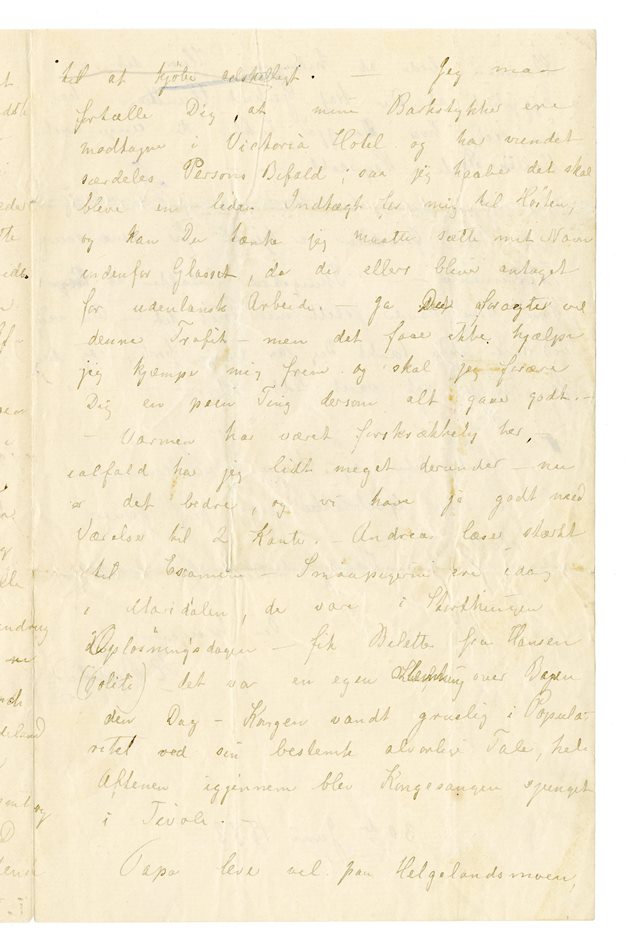 til at kjöbe adskelligt. — Jeg maa
fortælle Dig, at mine Barkstykker ere
modtagne i Victoria Hotel og har vundet
særdeles Persons Bifald; saa jeg haaber det skal
bleve en liden Indtægt for mig til Hösten,
og kan Du tænke jeg maatte sætte mit Navn
indenfor Glasset, da de ellers bleve antaget
for udenlansk Arbeide. — Ja Du foragter vel
denne Trafik — men det faar ikke hjælpe
jeg kjæmpe mig frem og skal jeg forære
Dig en pen Ting dersom alt gaar godt. —
— Varmen har været forskrækkelig her,
ialfald har jeg lidt meget derunder — nu
er det bedre, og vi have jo godt med
Værelser til 2 Kanter. — Andreas læser stærkt
til Examen — Smaapigerne ere idag
i Maridalen, de vare i Storthinget
Oplösningsdagen — fik Billetter fra Hansen
(politi) det var en egen Stemning over Byen
den Dag — Kongen vandt gruelig i Popula-
ritet ved sin bestemte alvorlige Tale, hele
Aftenen igjennem blev Kongesangen sjunget
i Tivoli. —
Papa leve vel paa Helgelandsmoen,